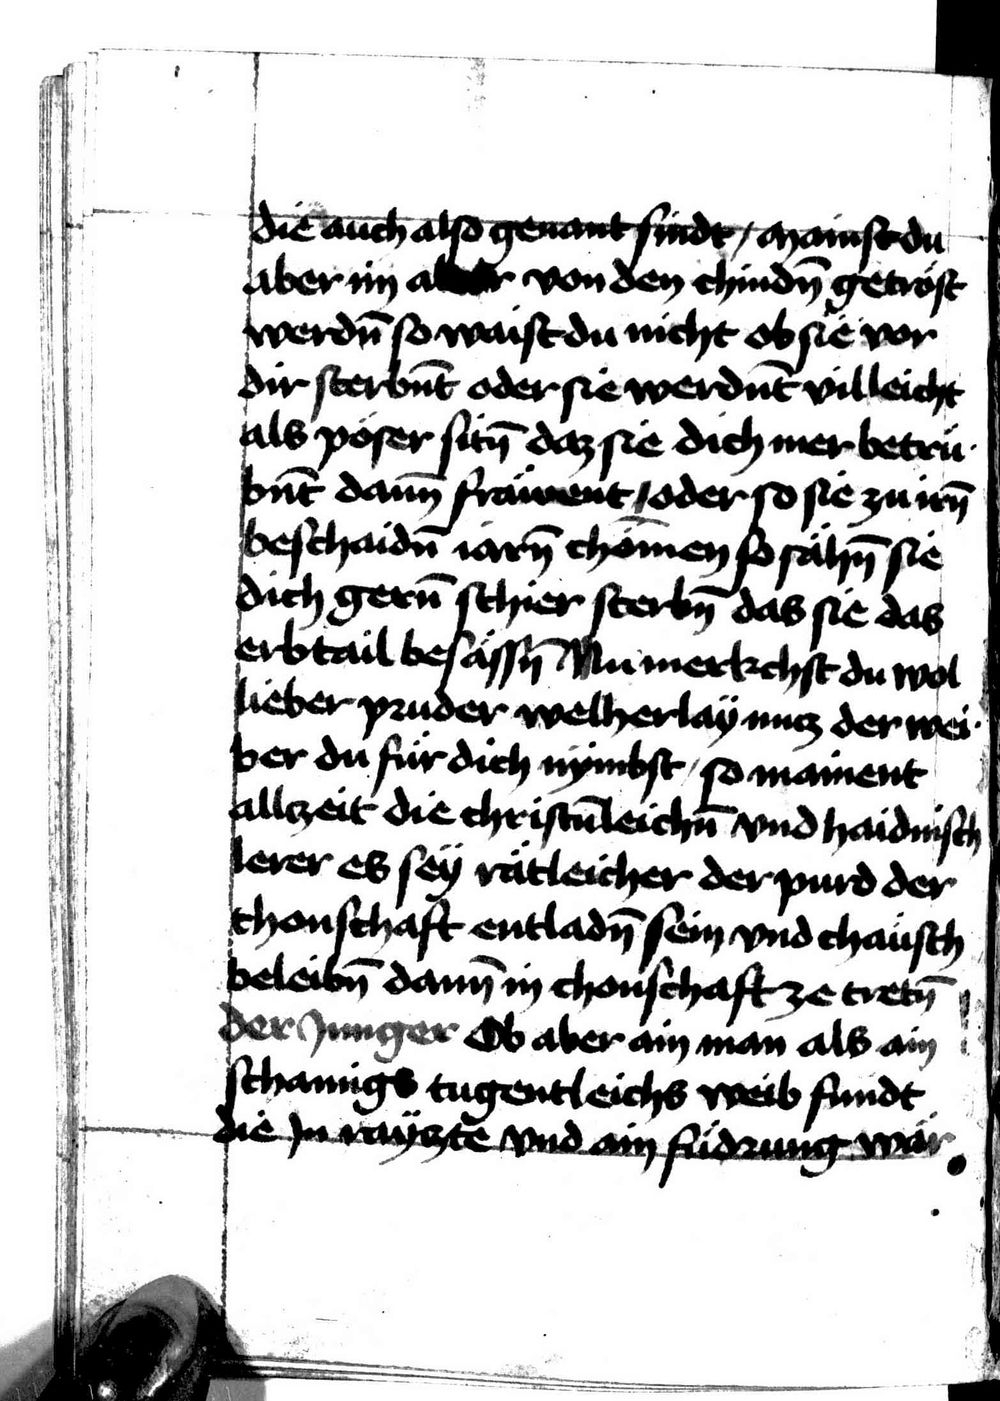 die auch also genant sindt / Mainst du
aber im alter von den chindn̄ getröst
werdn̄ so waist du nicht ob sie vor
dir sterbn̄t oder sie werdn̄t villeicht
als pöser sitn̄ daz sie dich mer betrü-
bn̄t dann̄ fräwent / oder so sie zu irn̄
beschaidn̄ iarn̄ chömen so sähn̄ sie
dich gern̄ schier sterbn̄ das sie das
erbtail besässn̄ Nu merkchst du wol
lieber pruder welherlaÿ nucz der wei-
ber du für dich nÿmbst / so mainent
allczeit die christn̄leichn̄ vnd haidnisch
lerer es seÿ rätleicher der purd der
chonschaft entladn̄ sein vnd chäusch
beleibn̄ dann̄ in chonschaft ze tretn̄
der Junger Ob aber ain man als ain
schamigs tugentleichs weib fundt
die In rayczte vnd ain fudrung wär